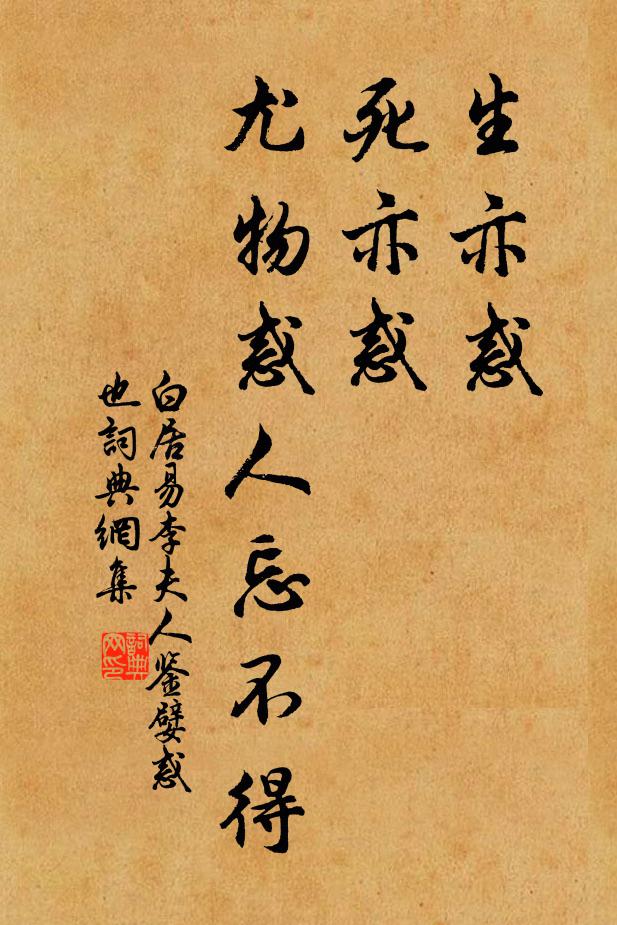 生亦惑
死亦惑
尤物惑人忘不得
白居易李夫人鉴嬖惑
也詞典網集
詞典
网印